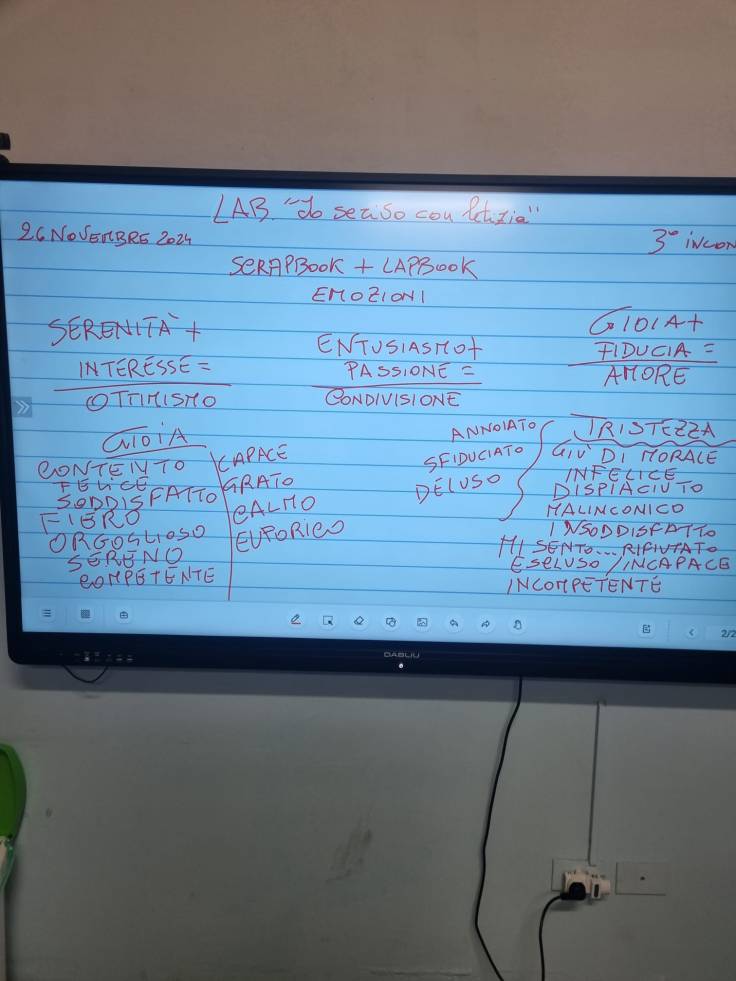 LAB. "Io scrivo con letizia"
26 NOVEMBRE 2024
3° INCON
SCRAPBOOK + LAPBOOK
EMOZIONI
SERENITÀ +
INTERESSE =
OTTIMISMO
ENTUSIASMO +
PASSIONE =
CONDIVISIONE
GIOIA +
FIDUCIA =
AMORE
GIOIA
CONTENTO
FELICE
SODDISFATTO
FIERO
ORGOGLIOSO
SERENO
COMPETENTE
CAPACE
GRATO
CALMO
EUFORICO
ANNOIATO
SFIDUCIATO
DELUSO
TRISTEZZA
GIU' DI MORALE
INFELICE
DISPIACIUTO
MALINCONICO
INSODDISFATTO
MI SENTO... RIFIUTATO
ESCLUSO / INCAPACE
INCOMPETENTE
2/2
DABLIU